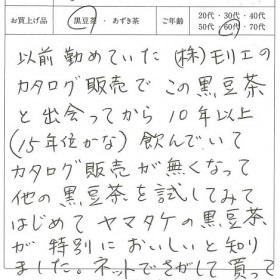 お買上げ品 黒豆茶・あずき茶 ご年齢 20代・30代・40代
50代・60代・70代
以前勤めていた(株)モリエの
カタログ販売でこの黒豆茶
と出会ってから10年以上
(15年位かな)飲んでいて
カタログ販売が無くなって
他の黒豆茶を試してみて
はじめてヤマタケの黒豆茶
が特別においしいと知り
ました。ネットでさがして買って